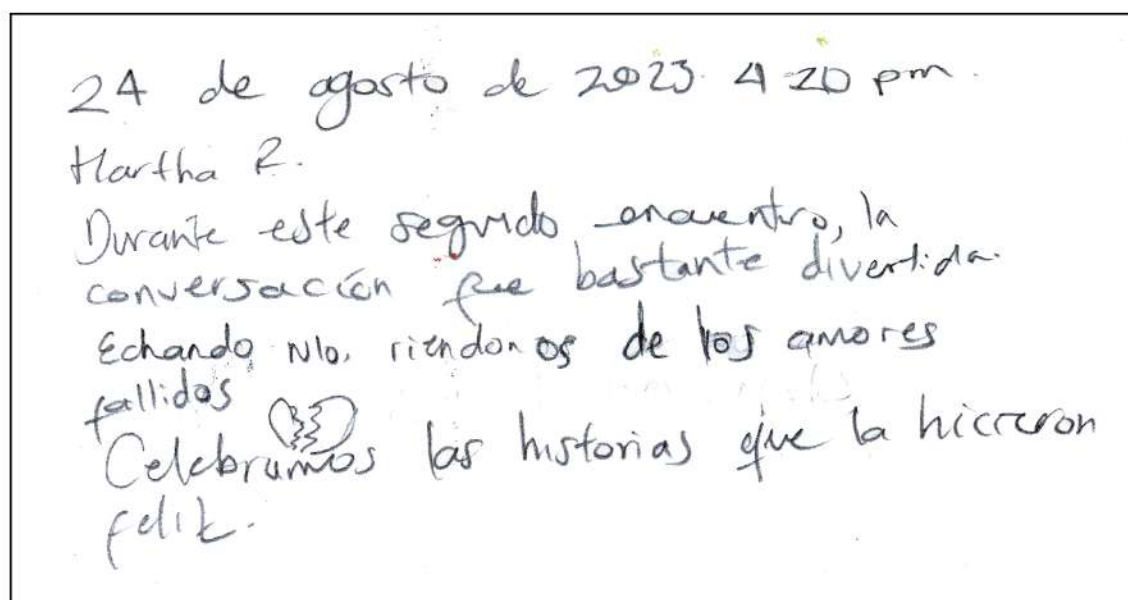 24 de agosto de 2023 4 20 pm.
Martha R.
Durante este segundo encuentro, la
conversación fue bastante divertida.
Echando riendonos de los amores
fallidos
Celebramos las historias que la hicieron
feliz.